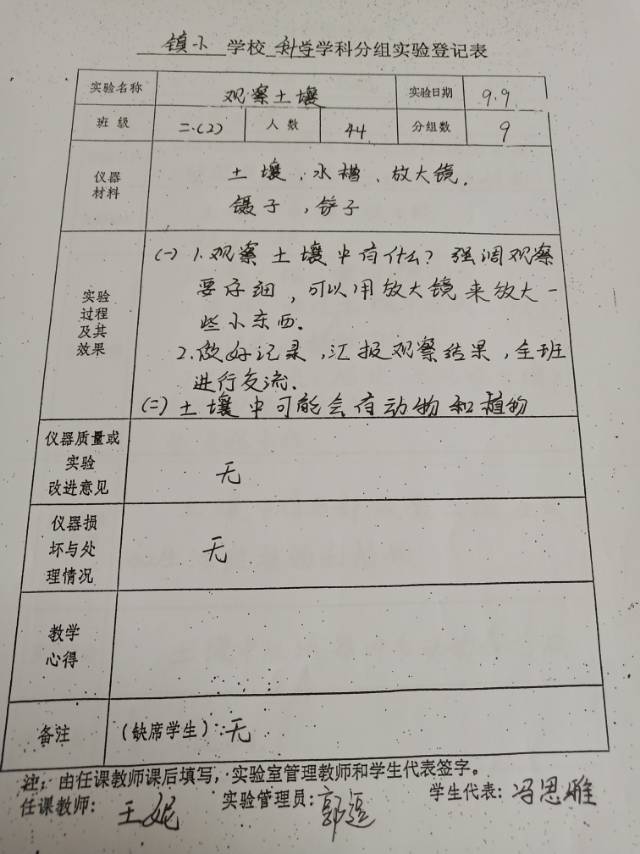 镇小 学校 科学 学科分组实验登记表
实验名称 观察土壤 实验日期 9.9
班 级 二.(2) 人 数 44 分组数 9
仪器
材料
土壤、水槽、放大镜.
镊子，铲子
实验
过程
及其
效果
(一) 1.观察土壤中有什么？强调观察
要仔细，可以用放大镜来放大一
些小东西.
2.做好记录，汇报观察结果，全班
进行交流.
(二) 土壤中可能会有动物和植物
仪器质量或
实验
改进意见
无
仪器损
坏与处
理情况
无
教学
心得
备注
(缺席学生)：无
注：由任课教师课后填写，实验室管理教师和学生代表签字。
任课教师：王妮 实验管理员：郭 学生代表：冯思雅